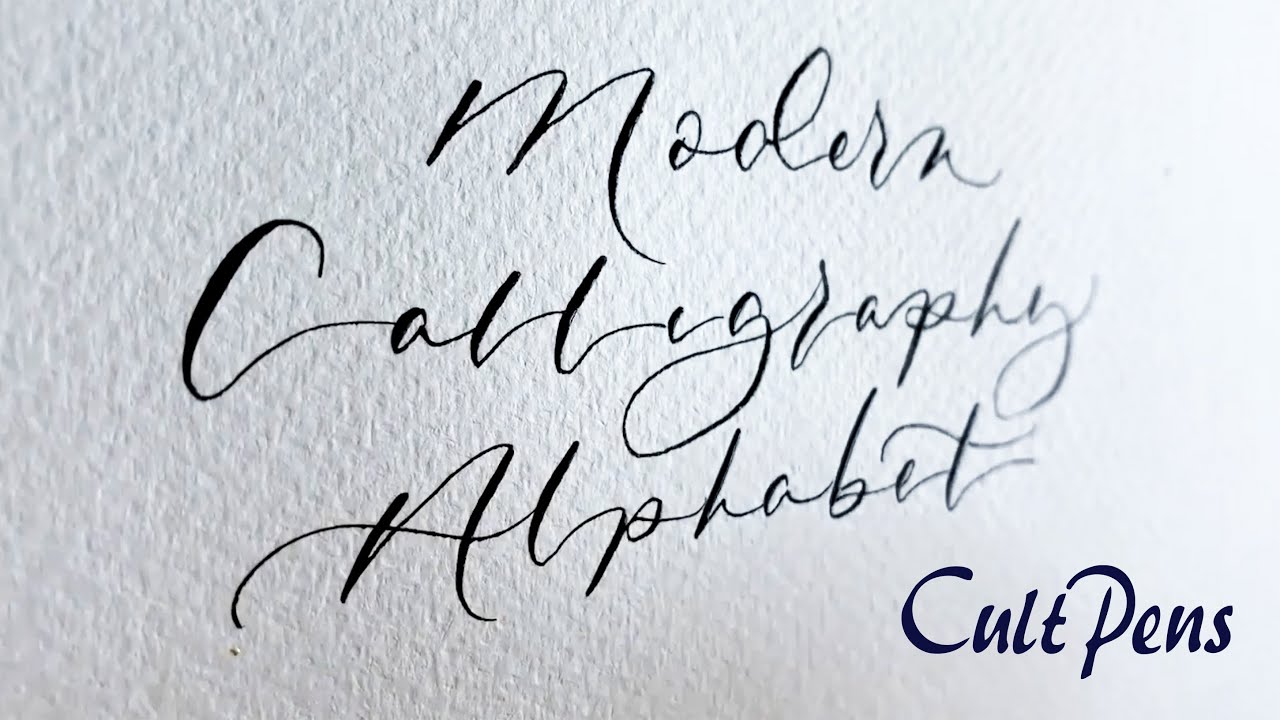 Modern
Calligraphy
Alphabet
Cult Pens